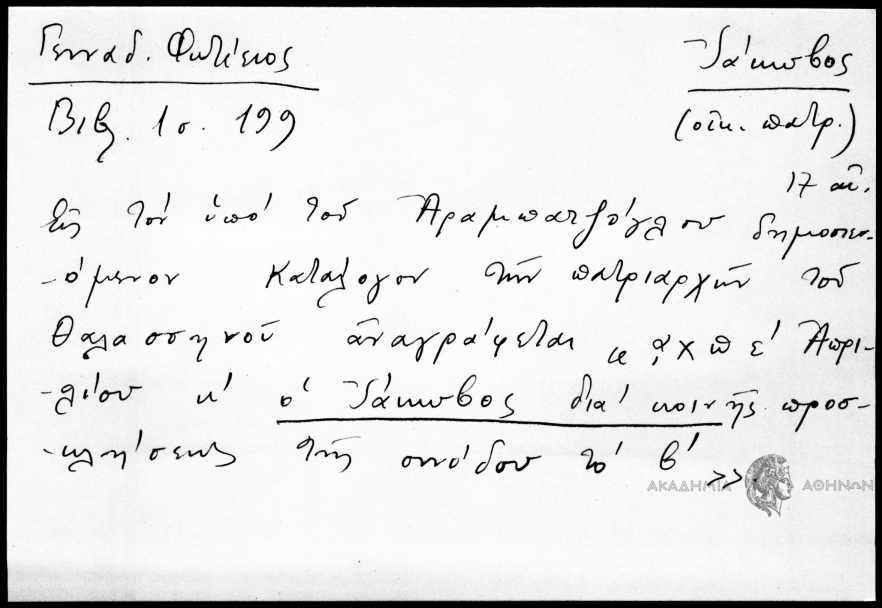 Γενναδ. Φωτίειος Ἰάκωβος
Βιβλ. 1 σ. 199 (οἰκ. πατρ.)
17 αἰ.
Εἰς τόν ὑπό τοῦ Ἀραμπατζόγλου δημοσιευ-
-όμενον κατάλογον τῶν πατριαρχῶν τοῦ
Θαλασσηνοῦ ἀναγράφεται « ͵αχπε' Ἀπρι-
-λίου κ' ὁ Ἰάκωβος διά κοινῆς προσ-
-κλήσεως τῆς συνόδου τό β' »
ΑΚΑΔΗΜΙΑ ΑΘΗΝΩΝ